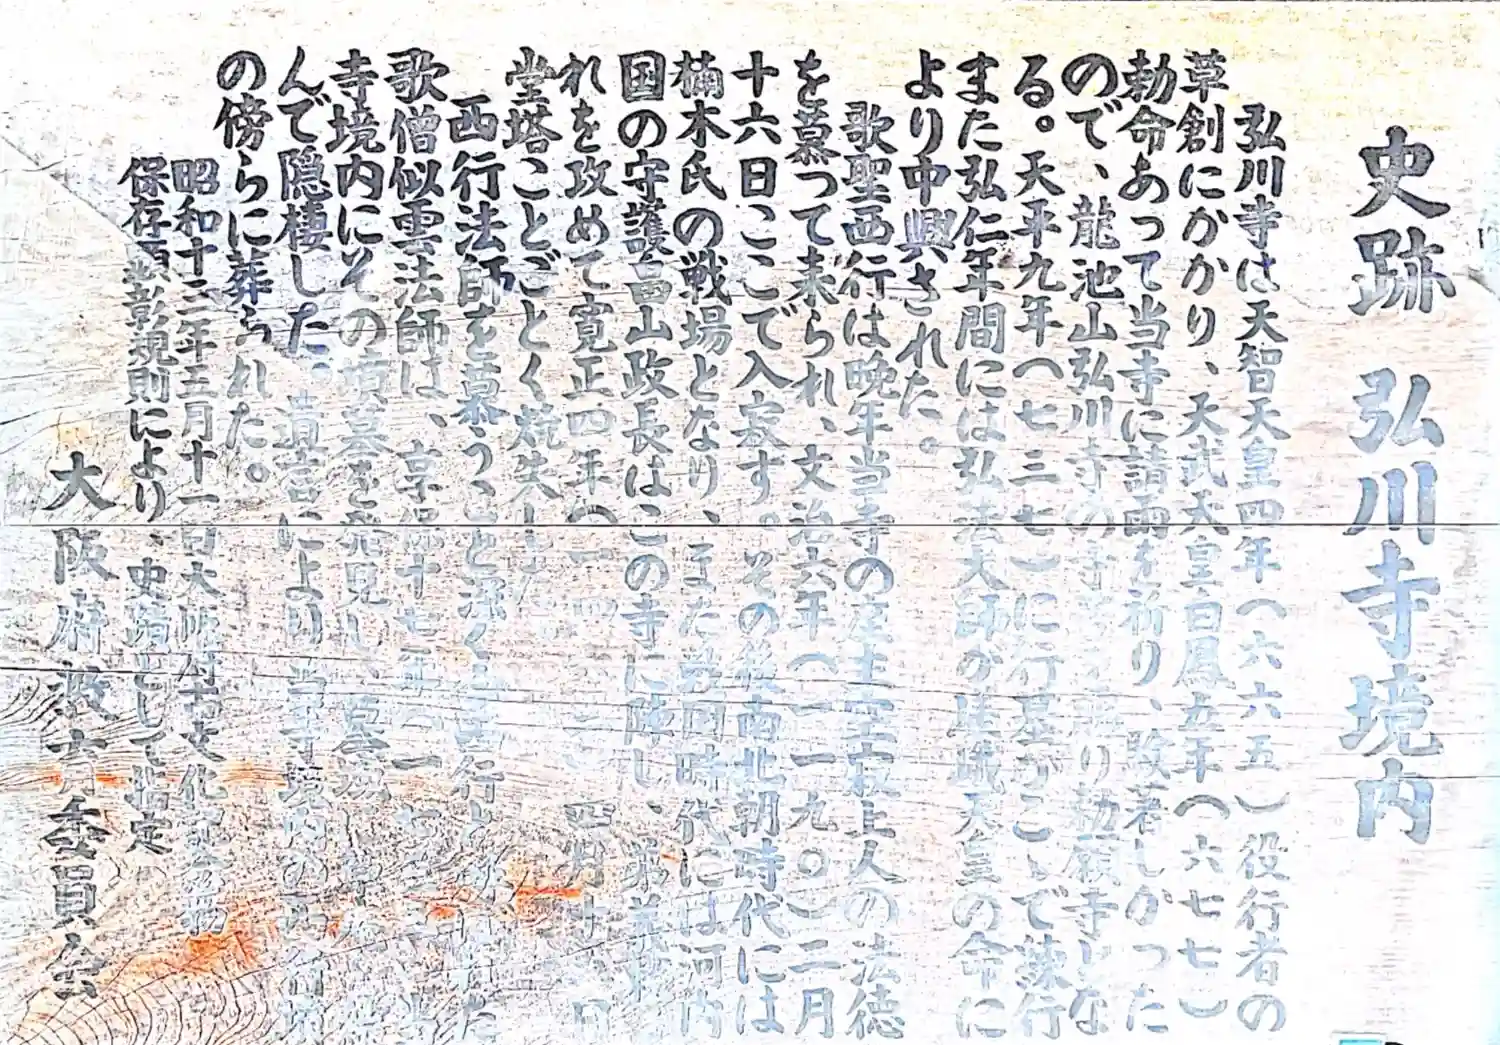 史跡 弘川寺境内
弘川寺は天智天皇四年(六六五)役行者の
草創にかかり、天武天皇白鳳五年(六七七)
勅命あって当寺に請雨を祈り、敗著しかった
ので、龍池山弘川寺の寺号を賜り勅願寺とな
る。天平九年(七三七)に行基がこゝで練行
また弘仁年間には弘法大師が嵯峨天皇の命に
より中興された。
歌聖西行は晩年当寺の座主空寂上人の法徳
を慕って来られ、文治六年(一一九〇)二月
十六日ここで入寂す。その後南北朝時代には
楠木氏の戦場となり、また戦国時代には河内
国の守護畠山政長はこの寺に陣し、義就
れを攻めて寛正四年(一四 四月十 日
堂塔ことごとく焼失した
西行法師を慕うこと深く
歌僧似雲法師は、享保十七年(一七
寺境内にその墳墓を発見し、墓域
んで隠棲した。遺言により当寺境内
の傍らに葬られた。
昭和十三年三月十一日大阪府 文化
保存顕彰規則により、史蹟として指定
大阪府教 委員会